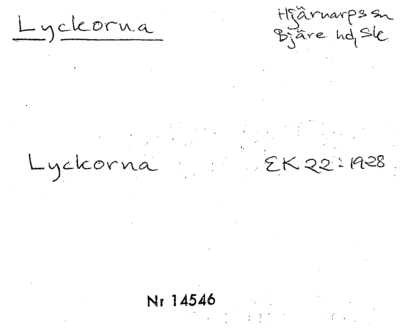 Lyckorna
Hjärnarps sn
Bjäre hd, Sk
Lyckorna
EK 22:1928
Nr 14546